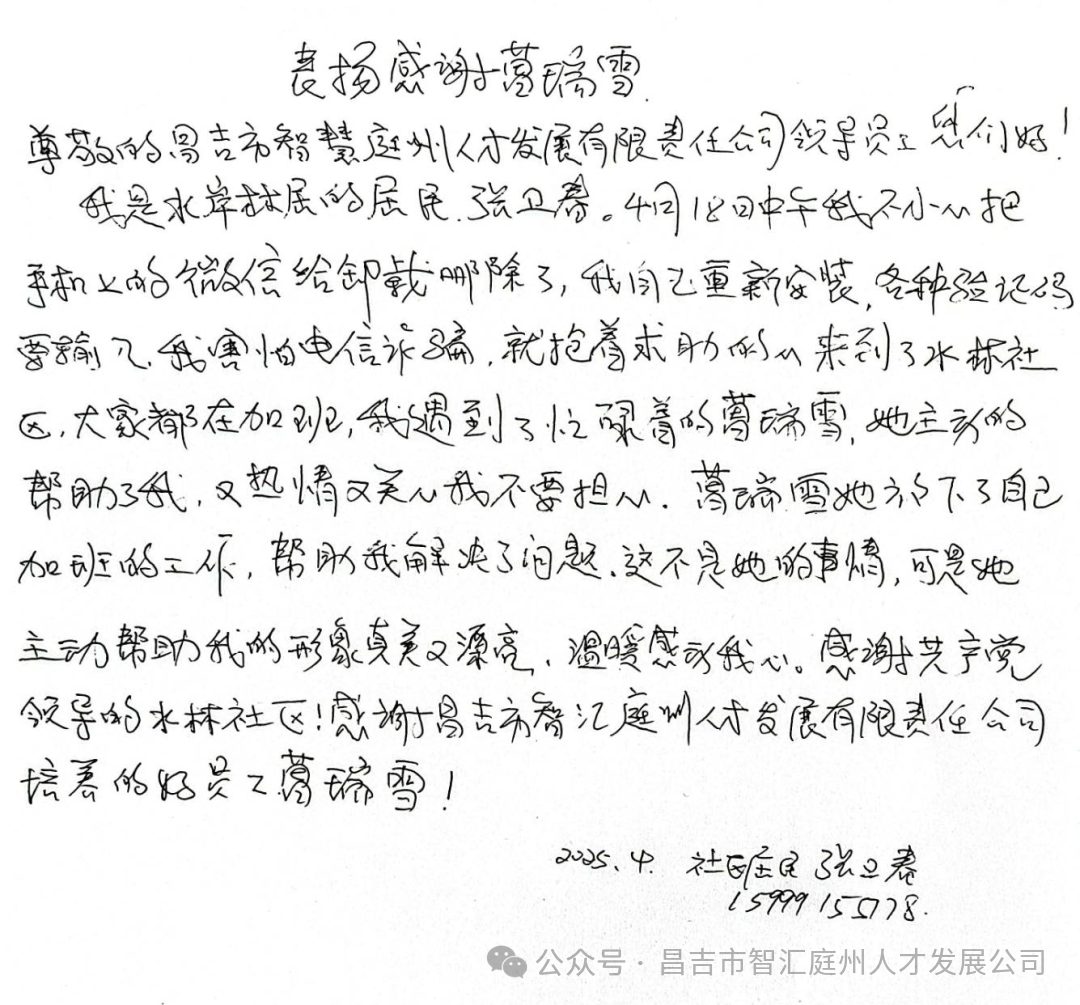 表扬感谢葛瑞雪
尊敬的昌吉市智慧庭州人才发展有限责任公司领导员工您们好！
我是水岸林居的居民张卫春。4月18日中午我不小心把
手机上的微信给卸载删除了，我自己重新安装，各种验证码
要输入，我害怕电信诈骗，就抱着求助的心来到了水林社
区，大家都在加班，我遇到了忙碌着的葛瑞雪，她主动的
帮助了我，又热情又关心我不要担心．葛瑞雪她放下了自己
加班的工作，帮助我解决了问题．这不是她的事情，可是她
主动帮助我的形象真美又漂亮，温暖感动我心。感谢共产党
领导的水林社区！感谢昌吉市智汇庭州人才发展有限责任公司
培养的好员工葛瑞雪！
2025.4. 社区居民 张卫春
公众号·昌吉市智汇庭州人才发展公司